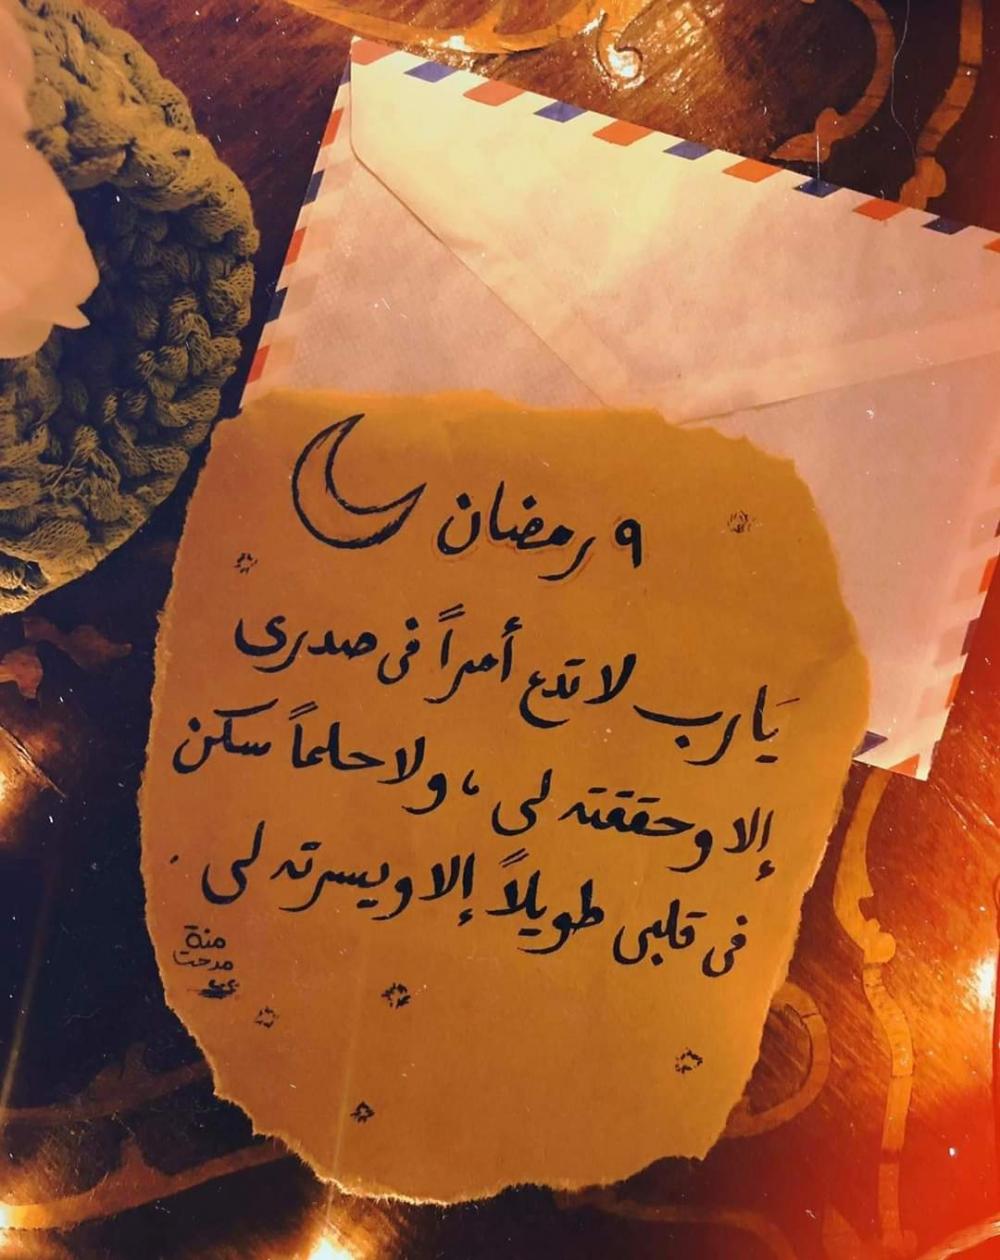 ٩ رمضان
يَارب لا تدع أمراً فى صدرى
إلا وحققته لى ، ولا حلماً سكن
فى قلبى طويلاً إلا ويسرته لى .
منة
مدحت